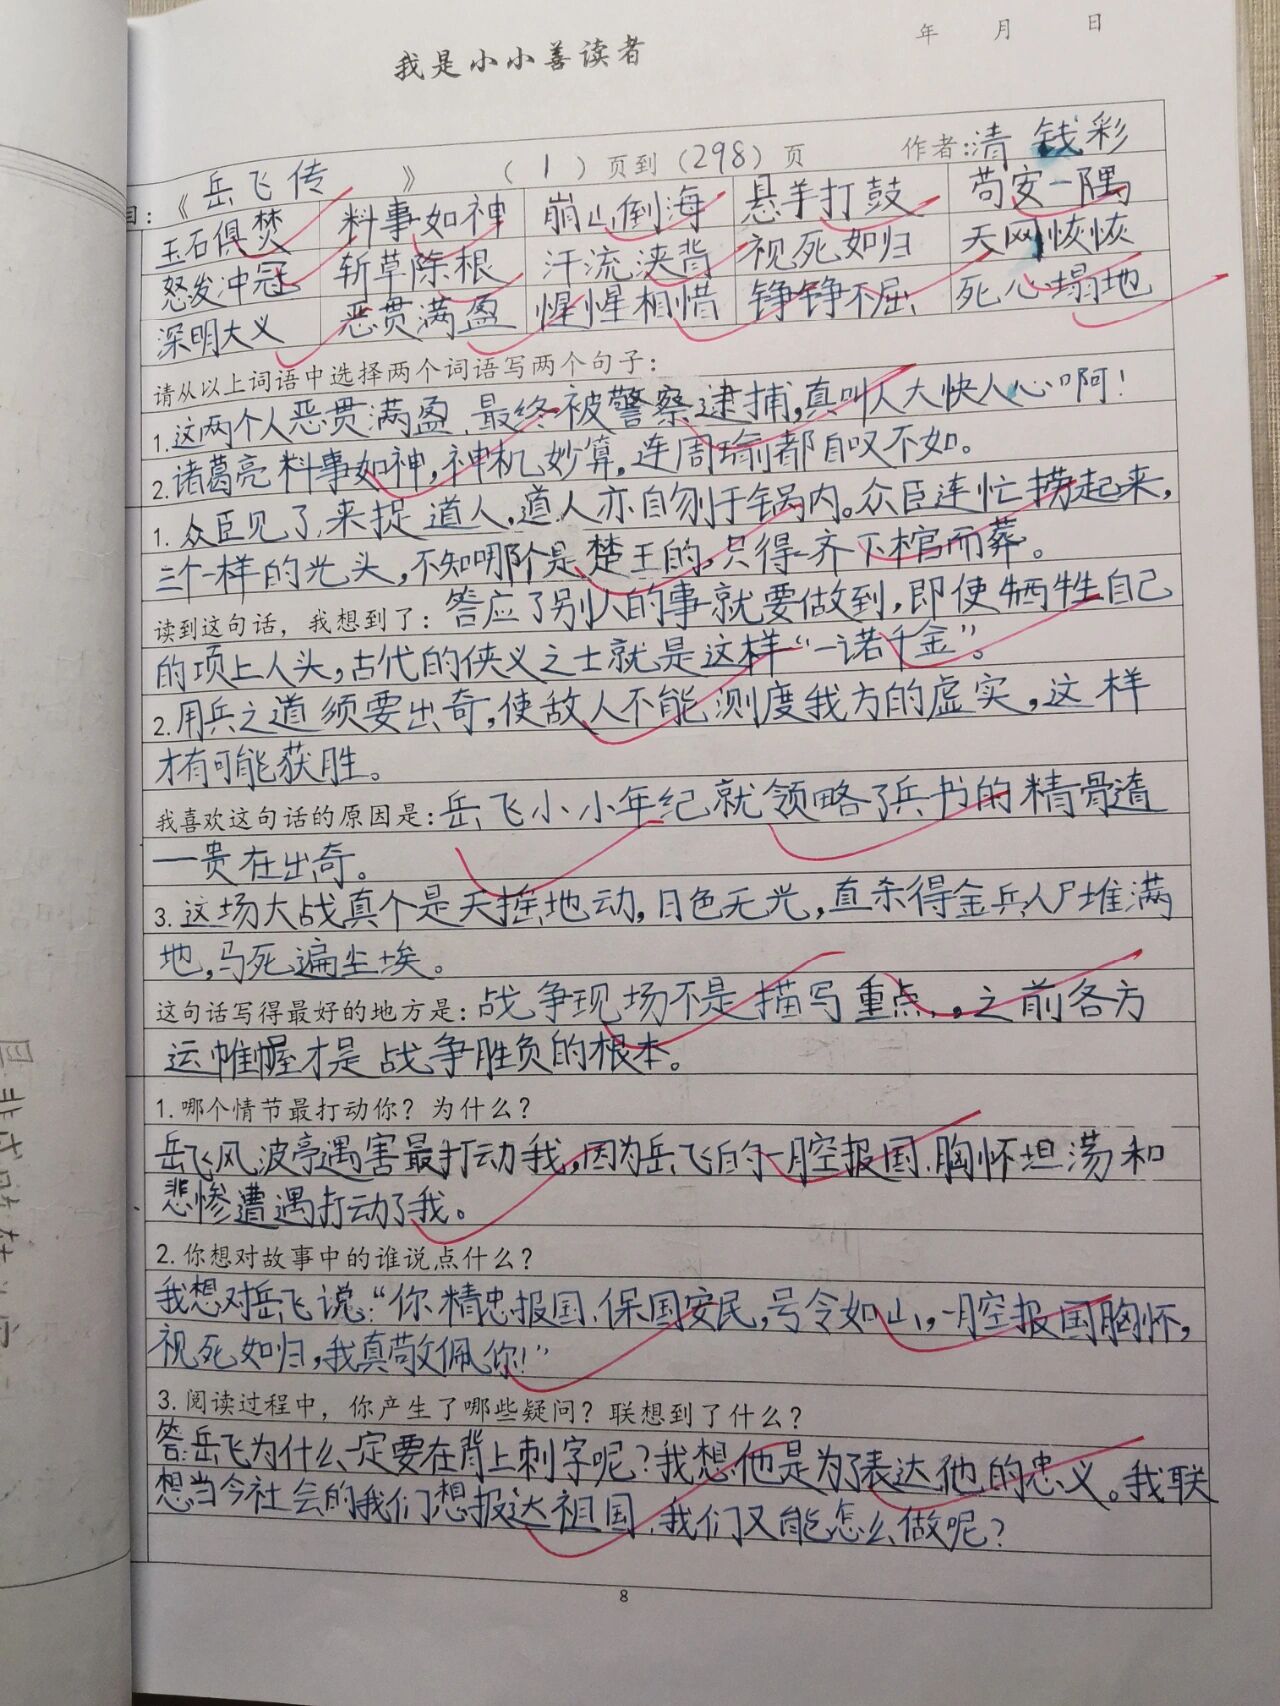 年 月 日
我是小小善读者
目：《岳飞传》（1）页到（298）页 作者：清 钱彩
玉石俱焚 料事如神 崩山倒海 悬羊打鼓 苟安一隅
怒发冲冠 斩草除根 汗流浃背 视死如归 天网恢恢
深明大义 恶贯满盈 惺惺相惜 铮铮不屈 死心塌地
请从以上词语中选择两个词语写两个句子：
1.这两个人恶贯满盈、最终被警察逮捕，真叫人大快人心啊！
2.诸葛亮料事如神，神机妙算，连周瑜都自叹不如。
1. 众臣见了，来捉道人，道人亦自刎于锅内。众臣连忙捞起来，
三个一样的光头，不知哪个是楚王的，只得一齐下棺而葬。
读到这句话，我想到了：答应了别人的事就要做到，即使牺牲自己
的项上人头，古代的侠义之士就是这样“一诺千金”。
2.用兵之道须要出奇，使敌人不能测度我方的虚实，这样
才有可能获胜。
我喜欢这句话的原因是：岳飞小小年纪就领略了兵书的精骨遣
一贵在出奇。
3.这场大战真个是天摇地动，日色无光，直杀得金兵人尸堆满
地，马死遍尘埃。
这句话写得最好的地方是：战争现场不是描写重点，。之前各方
运帷幄才是战争胜负的根本。
1.哪个情节最打动你？为什么？
岳飞风波亭遇害最打动我，因为岳飞的一腔报国、胸怀坦荡和
悲惨遭遇打动了我。
2.你想对故事中的谁说点什么？
我想对岳飞说：“你精忠报国、保国安民，号令如山，一腔报国胸怀，
视死如归，我真敬佩你！”
3.阅读过程中，你产生了哪些疑问？联想到了什么？
答：岳飞为什么一定要在背上刺字呢？我想他是为了表达他的忠义。我联
想当今社会的我们想报达祖国，我们又能怎么做呢？
8